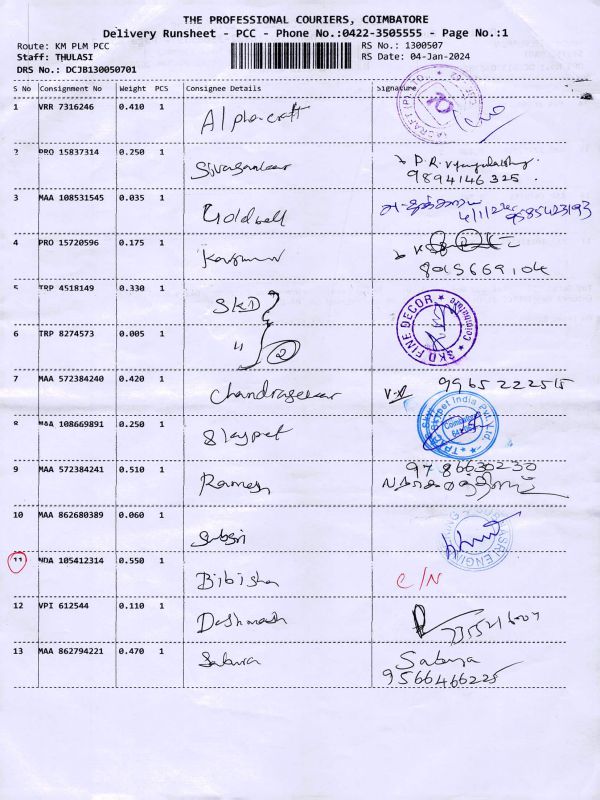 THE PROFESSIONAL COURIERS, COIMBATORE
Delivery Runsheet - PCC - Phone No.:0422-3505555 - Page No.:1
Route: KM PLM PCC
RS No.: 1300507
Staff: THULASI
RS Date: 04-Jan-2024
DRS No.: DCJB130050701
S No Consignment No Weight PCS Consignee Details Signature
1 VRR 7316246 0.410 1
Alphacraft
2 PRO 15837314 0.250 1
Sivasankar
9894146325
3 MAA 108531545 0.035 1
Goldwell
4/1/24 9585423193
4 PRO 15720596 0.175 1
8015669104
5 TRP 4518149 0.330 1
SKD
SKD FINE DECOR Coimbatore
6 TRP 8274573 0.005 1
" 2
7 MAA 572384240 0.420 1
Chandrasekar
9965222515
8 MAA 108669891 0.250 1
Skypet
Skypet India Pvt Ltd. Coimbatore
9 MAA 572384241 0.510 1
9786630230
Ramesh
10 MAA 862680389 0.060 1
Subsri
11 NDA 105412314 0.550 1
Bibisha C/N
12 VPI 612544 0.110 1
Dashmash
13 MAA 862794221 0.470 1
Sabura
9566466225